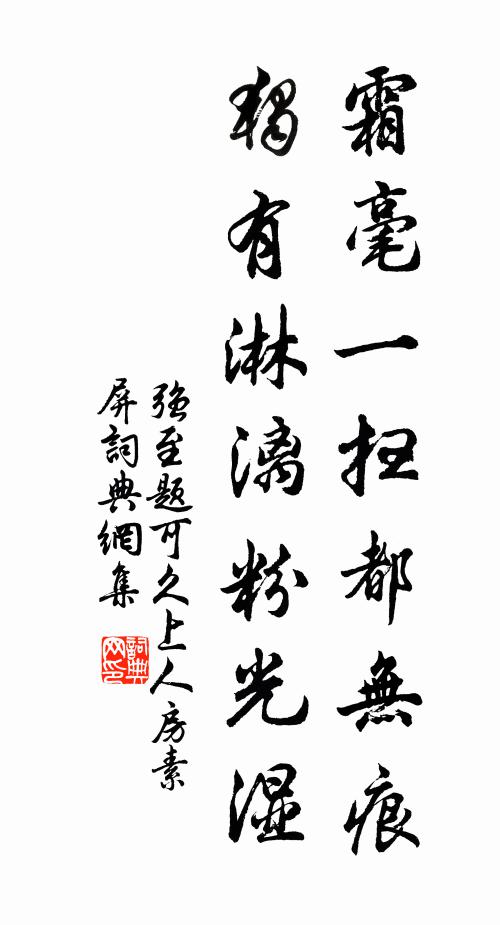 霜毫一扫都無痕
獨有淋漓粉光湿
强至题可久上人房素
屏詞典網集
詞典网印